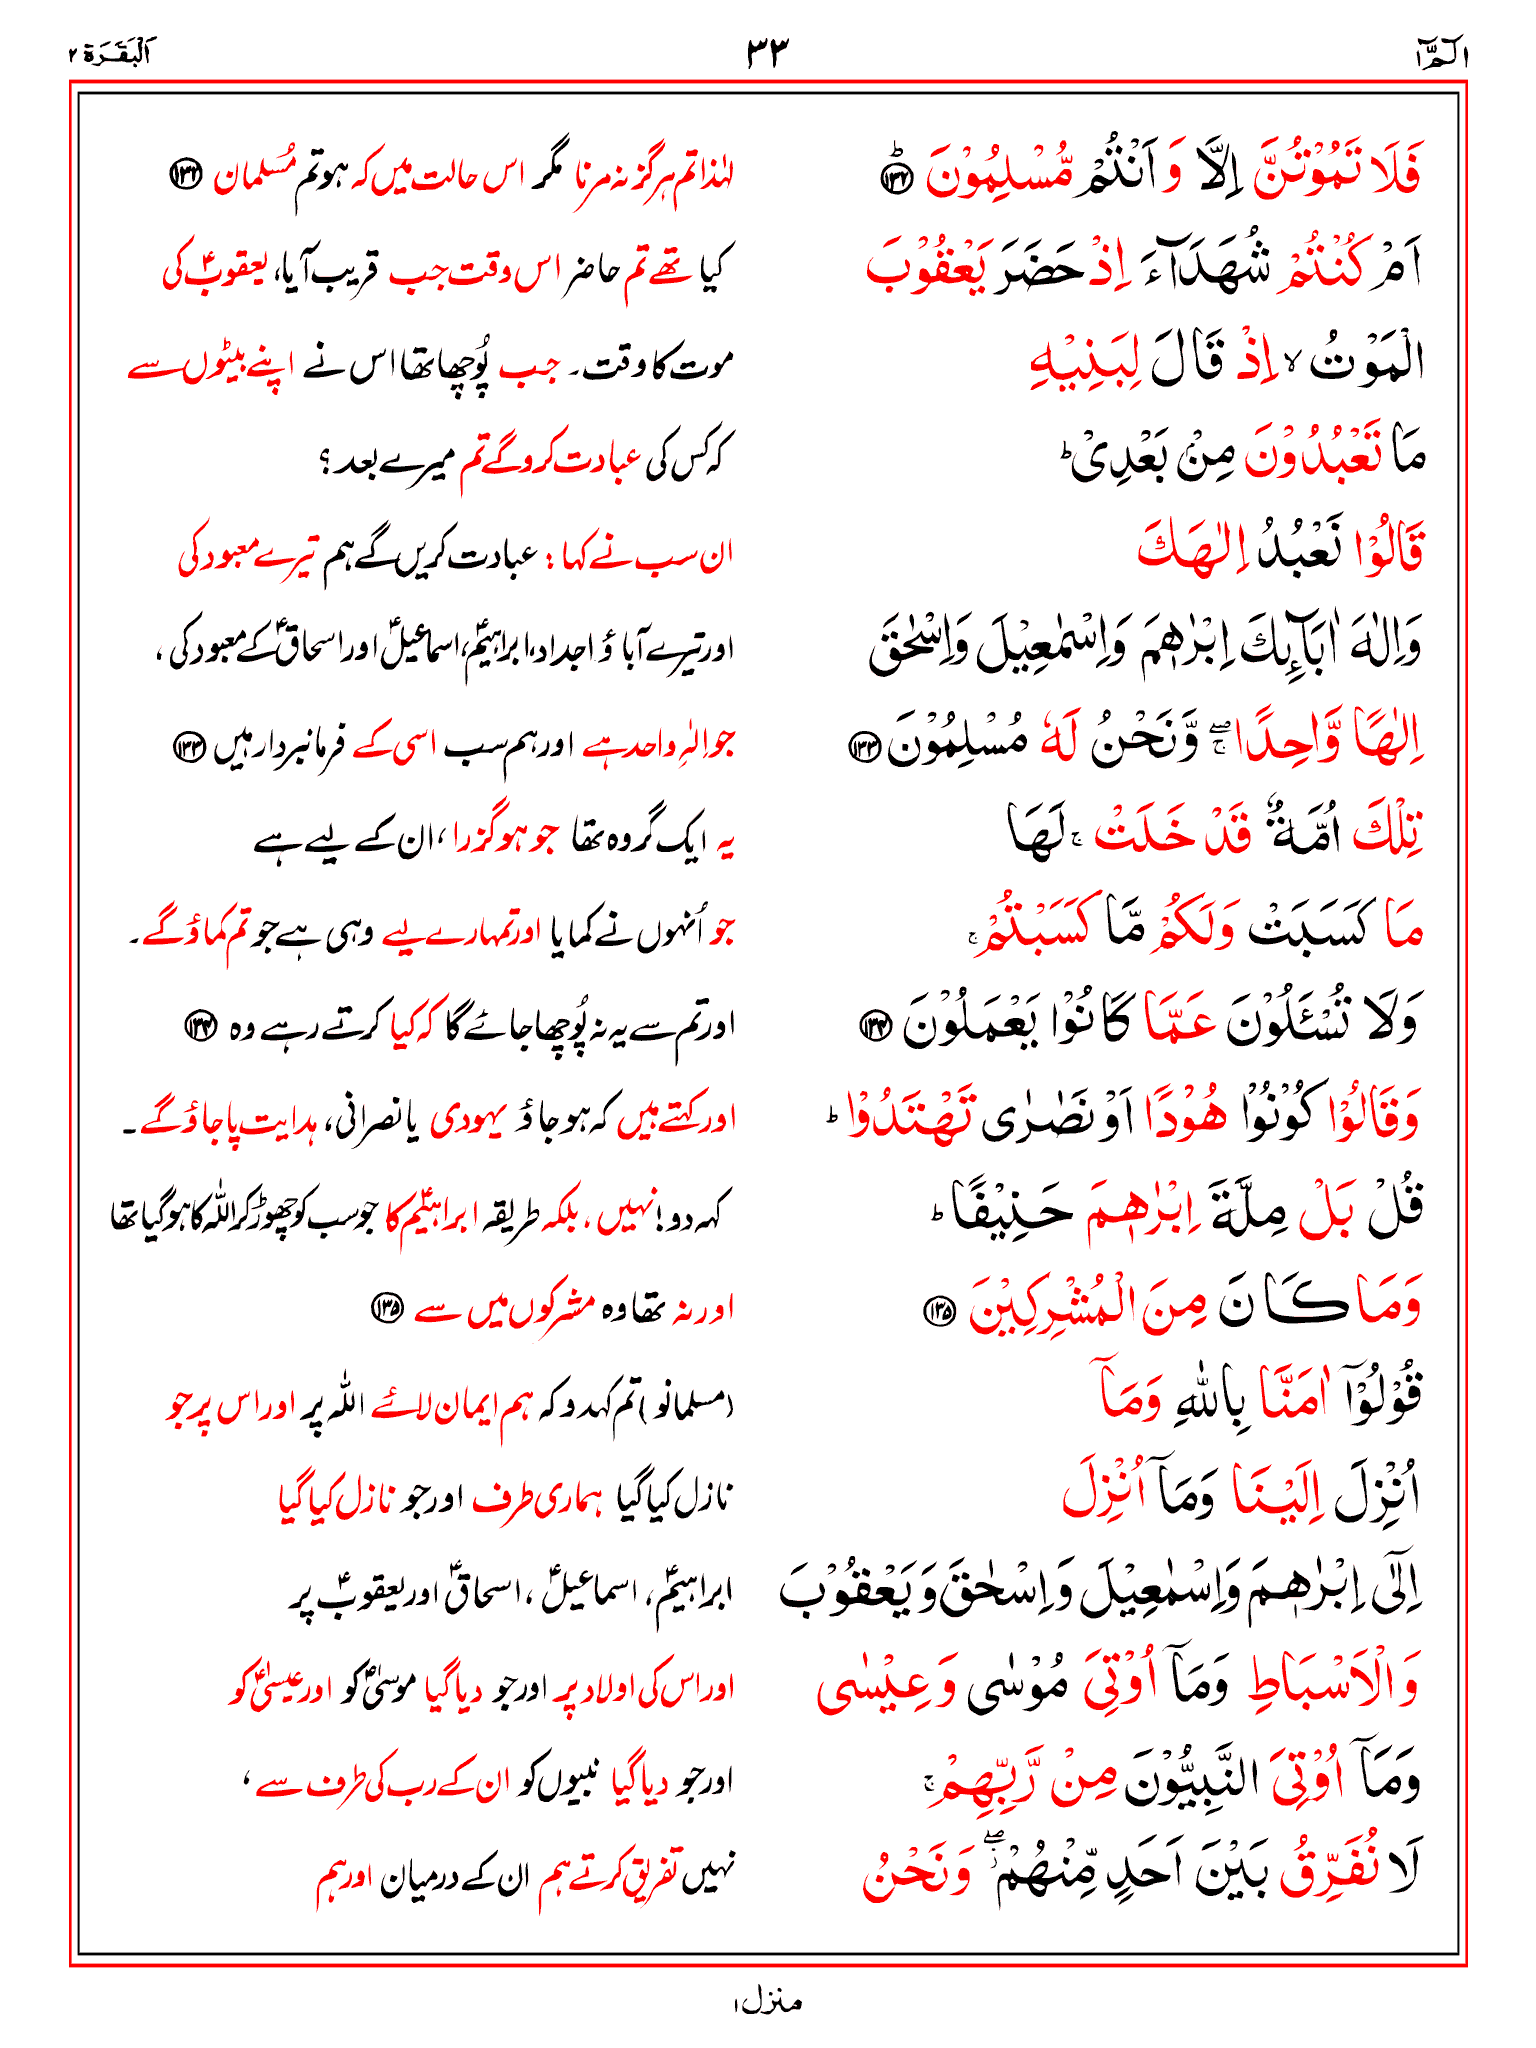 الٓمّٓ ۱ ۳۳ اَلْبَقَرَة ۲
فَلَا تَمُوْتُنَّ اِلَّا وَ اَنْتُمْ مُّسْلِمُوْنَ ؕ ﴿۱۳۲﴾ لہٰذا تم ہرگز نہ مرنا مگر اس حالت میں کہ ہو تم مُسلمان ﴿۱۳۲﴾
اَمْ كُنْتُمْ شُهَدَآءَ اِذْ حَضَرَ يَعْقُوْبَ کیا تھے تم حاضر اس وقت جب قریب آیا، یعقوبؑ کی
الْمَوْتُ ۙ اِذْ قَالَ لِبَنِيْهِ موت کا وقت۔ جب پُوچھا تھا اس نے اپنے بیٹوں سے
مَا تَعْبُدُوْنَ مِنْۢ بَعْدِيْ ؕ کہ کس کی عبادت کرو گے تم میرے بعد؟
قَالُوْا نَعْبُدُ اِلٰهَكَ ان سب نے کہا: عبادت کریں گے ہم تیرے معبود کی
وَاِلٰهَ اٰبَآىِٕكَ اِبْرٰهٖمَ وَاِسْمٰعِيْلَ وَاِسْحٰقَ اور تیرے آباؤ اجداد، ابراہیمؑ، اسماعیلؑ اور اسحاقؑ کے معبود کی،
اِلٰهًا وَّاحِدًا ۖۚ وَّنَحْنُ لَهٗ مُسْلِمُوْنَ ﴿۱۳۳﴾ جو الٰہِ واحد ہے اور ہم سب اسی کے فرمانبردار ہیں ﴿۱۳۳﴾
تِلْكَ اُمَّةٌ قَدْ خَلَتْ ۚ لَهَا یہ ایک گروہ تھا جو ہو گزرا، ان کے لیے ہے
مَا كَسَبَتْ وَلَكُمْ مَّا كَسَبْتُمْ ۚ جو اُنہوں نے کمایا اور تمہارے لیے وہی ہے جو تم کماؤ گے۔
وَلَا تُسْـَٔلُوْنَ عَمَّا كَانُوْا يَعْمَلُوْنَ ﴿۱۳۴﴾ اور تم سے یہ نہ پُوچھا جائے گا کہ کیا کرتے رہے وہ ﴿۱۳۴﴾
وَقَالُوْا كُوْنُوْا هُوْدًا اَوْ نَصٰرٰى تَهْتَدُوْا ؕ اور کہتے ہیں کہ ہو جاؤ یہودی یا نصرانی، ہدایت پا جاؤ گے۔
قُلْ بَلْ مِلَّةَ اِبْرٰهٖمَ حَنِيْفًا ؕ کہہ دو! نہیں، بلکہ طریقہ ابراہیمؑ کا جو سب کو چھوڑ کر اللہ کا ہو گیا تھا
وَمَا كَانَ مِنَ الْمُشْرِكِيْنَ ﴿۱۳۵﴾ اور نہ تھا وہ مشرکوں میں سے ﴿۱۳۵﴾
قُوْلُوْۤا اٰمَنَّا بِاللّٰهِ وَمَاۤ (مسلمانو) تم کہدو کہ ہم ایمان لائے اللہ پر اور اس پر جو
اُنْزِلَ اِلَيْنَا وَمَاۤ اُنْزِلَ نازل کیا گیا ہماری طرف اور جو نازل کیا گیا
اِلٰۤى اِبْرٰهٖمَ وَاِسْمٰعِيْلَ وَاِسْحٰقَ وَيَعْقُوْبَ ابراہیمؑ، اسماعیلؑ، اسحاقؑ اور یعقوبؑ پر
وَالْاَسْبَاطِ وَمَاۤ اُوْتِيَ مُوْسٰى وَعِيْسٰى اور اس کی اولاد پر اور جو دیا گیا موسیٰؑ کو اور عیسیٰؑ کو
وَمَاۤ اُوْتِيَ النَّبِيُّوْنَ مِنْ رَّبِّهِمْ ۚ اور جو دیا گیا نبیوں کو ان کے رب کی طرف سے،
لَا نُفَرِّقُ بَيْنَ اَحَدٍ مِّنْهُمْ ۖؗ وَنَحْنُ نہیں تفریق کرتے ہم ان کے درمیان اور ہم
منزل ۱